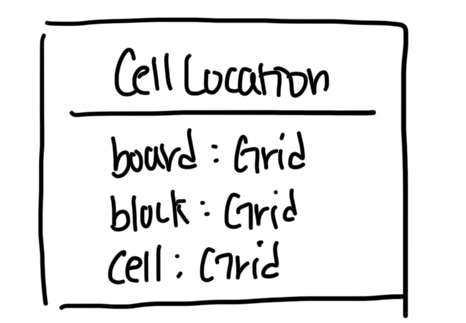 CellLocation
board : Grid
block : Grid
cell : Grid